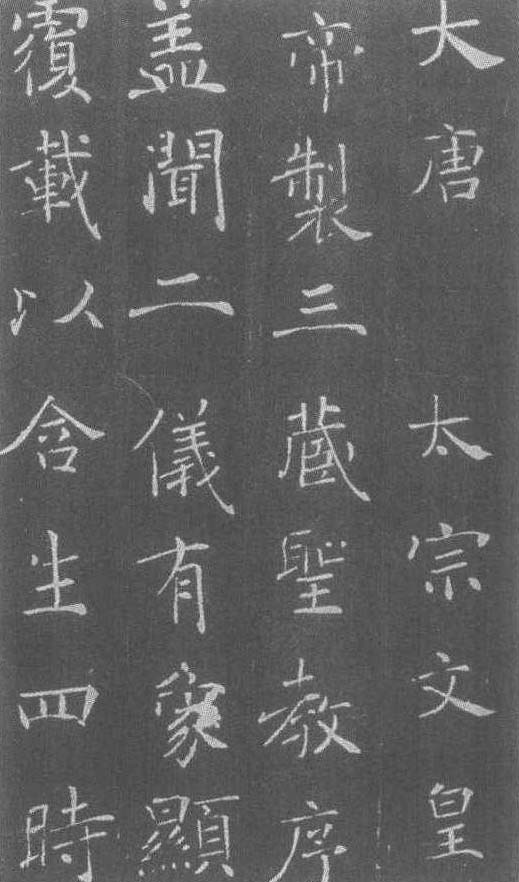 大唐太宗文皇
帝製三藏聖教序
蓋聞二儀有象顯
覆載以含生四時